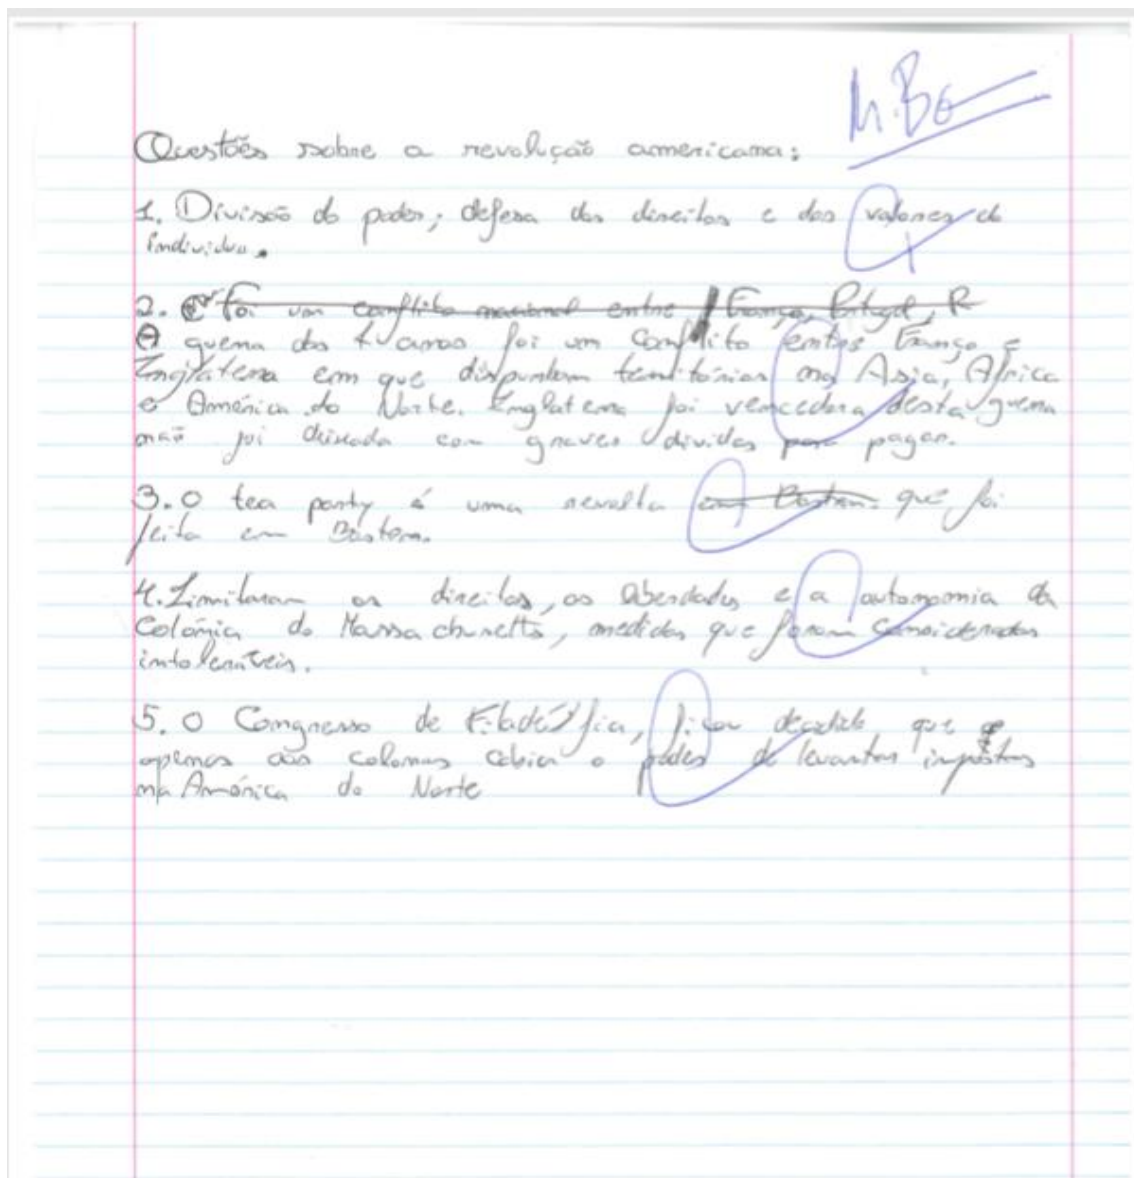 M.Bo
Questões sobre a revolução americana:
1. Divisão do poder; defesa dos direitos e dos valores do
indivíduo.
2. Foi um conflito nacional entre França, Portugal, R
A guerra dos 7 anos foi um conflito entre França e
Inglaterra em que disputam territórios na Asia, Africa
e América do Norte. Inglaterra foi vencedora desta guerra
mas foi deixada com graves dívidas para pagar.
3. O tea party é uma revolta em Boston que foi
feita em Boston.
4. Limitaram os direitos, as liberdades e a autonomia da
Colónia de Massachusetts, medidas que foram consideradas
intoleráveis.
5. O Congresso de Filadélfia, ficou decidido que
apenas aos colonos cabia o poder de levantar impostos
na América do Norte